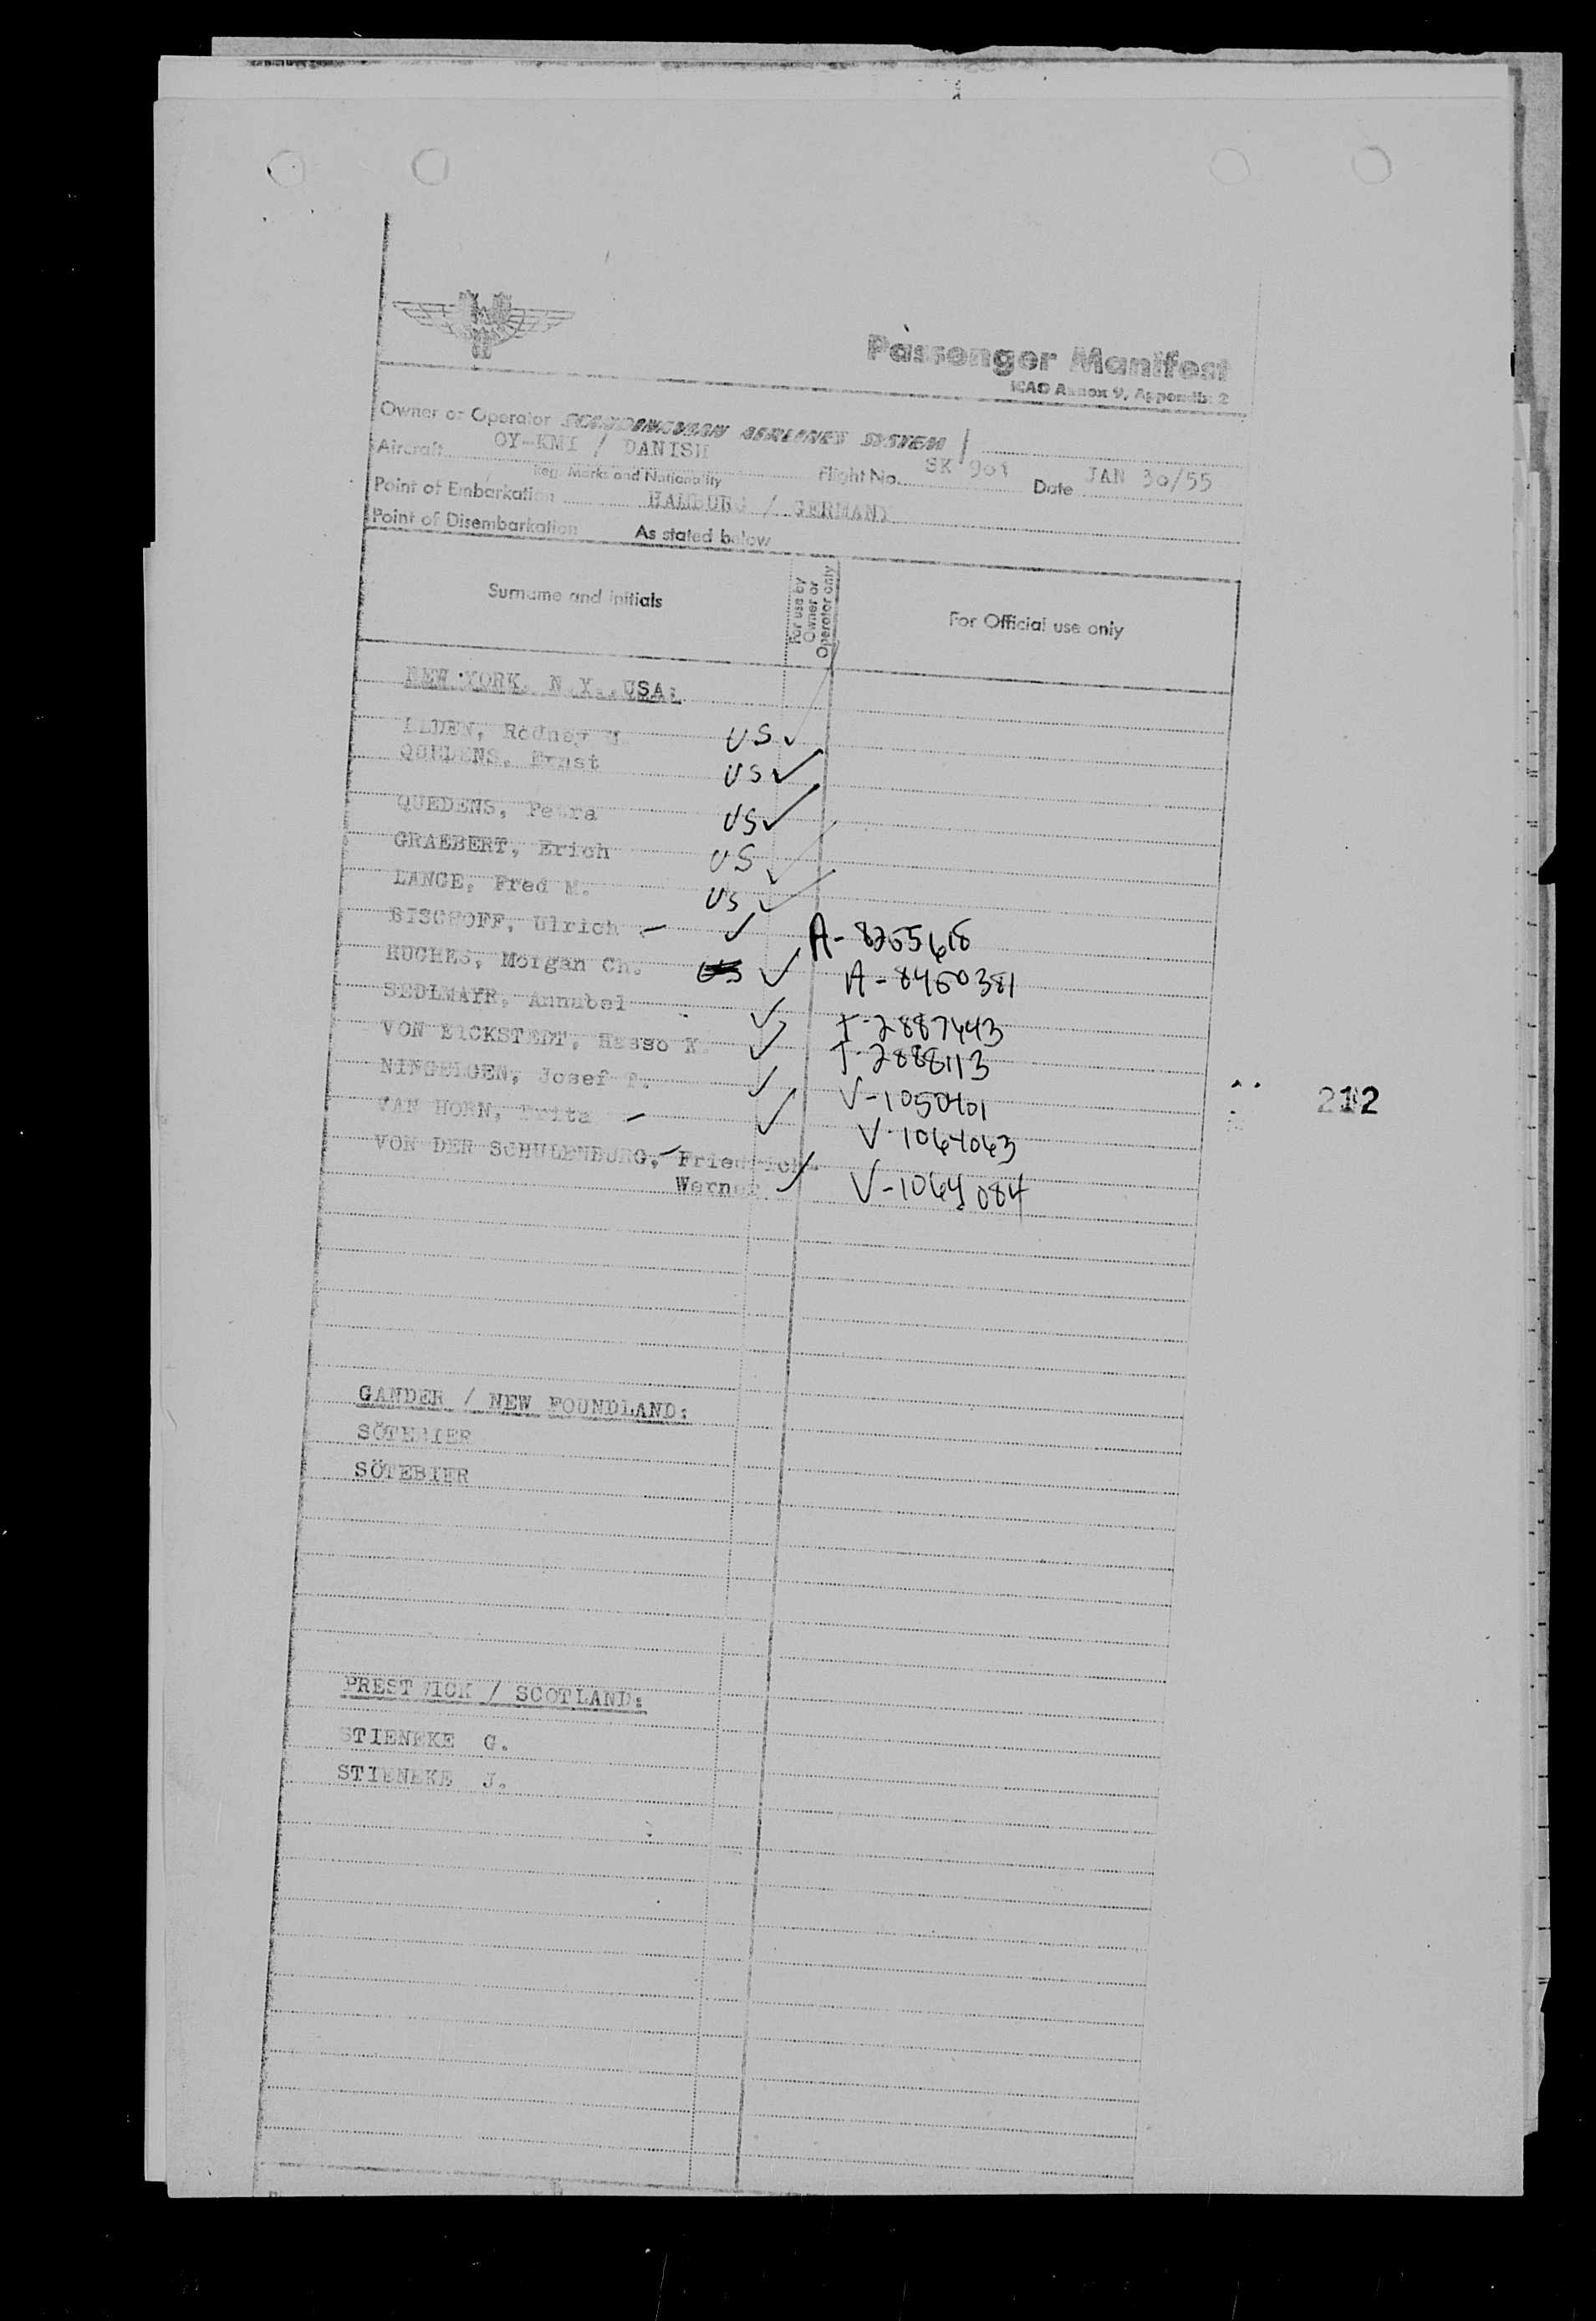 Passenger Manifest
ICAO Annex 9, Appendix 2
Owner or Operator SCANDINAVIAN AIRLINES SYSTEM
Aircraft OY-KMI / DANISH Flight No. SK 901 Date JAN 30/55
Reg. Marks and Nationality
Point of Embarkation HAMBURG / GERMANY
Point of Disembarkation As stated below
Surname and initials For use by Owner or Operator only For Official use only
NEW YORK, N.Y., USA:
Rodney US ✓
QUEDENS, Ernst US ✓
QUEDENS, Petra US ✓
GRAEBERT, Erich US ✓
LANGE, Fred M. US ✓
BISCHOFF, Ulrich - ✓ A-8255618
HUGHES, Morgan Ch. US ✓ A-8450381
SEDLMAYR, Annubel ✓ T-2887443
VON EICKSTEDT, Hasso K. ✓ T-2888113
Josef ✓ V-1050401
VAN HORN, - ✓ V-1064063
VON DER SCHULENBURG, Friedrich-
Werner ✓ V-1064084
212
GANDER / NEW FOUNDLAND:
SÖTEBIER
SÖTEBIER
PRESTWICK / SCOTLAND:
STIENEKE G.
STIENEKE J.